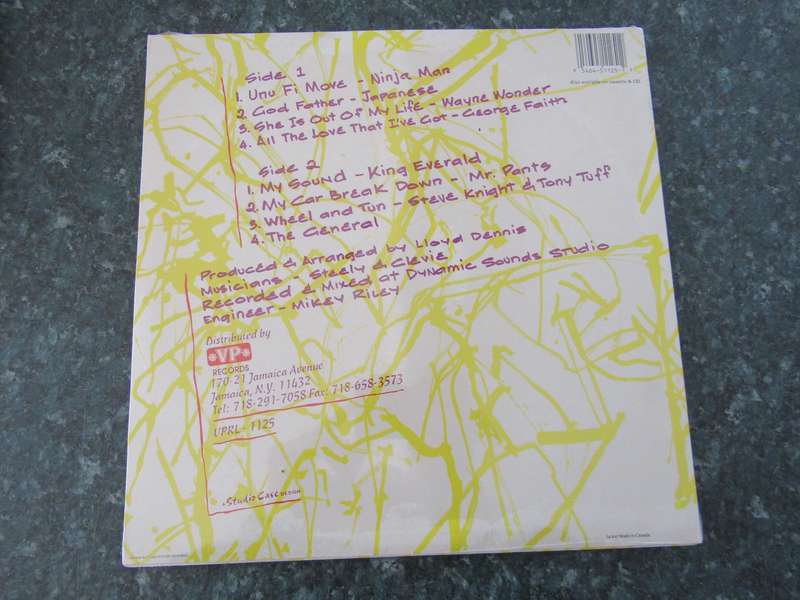 Side 1
1. Unu Fi Move - Ninja Man
2. God Father - Japanese
3. She Is Out Of My Life - Wayne Wonder
4. All The Love That I've Got - George Faith
Side 2
1. My Sound - King Everald
2. My Car Break Down - Mr. Pants
3. Wheel and Tun - Steve Knight & Tony Tuff
4. The General
Produced & Arranged by Lloyd Dennis
Musicians - Steely & Clevie
Recorded & Mixed at Dynamic Sounds Studio
Engineer - Mikey Riley
Distributed by
VP
RECORDS
170-21 Jamaica Avenue
Jamaica, N.Y. 11432
Tel: 718-291-7058 Fax: 718-658-3573
UPRL-1125
Made in Canada